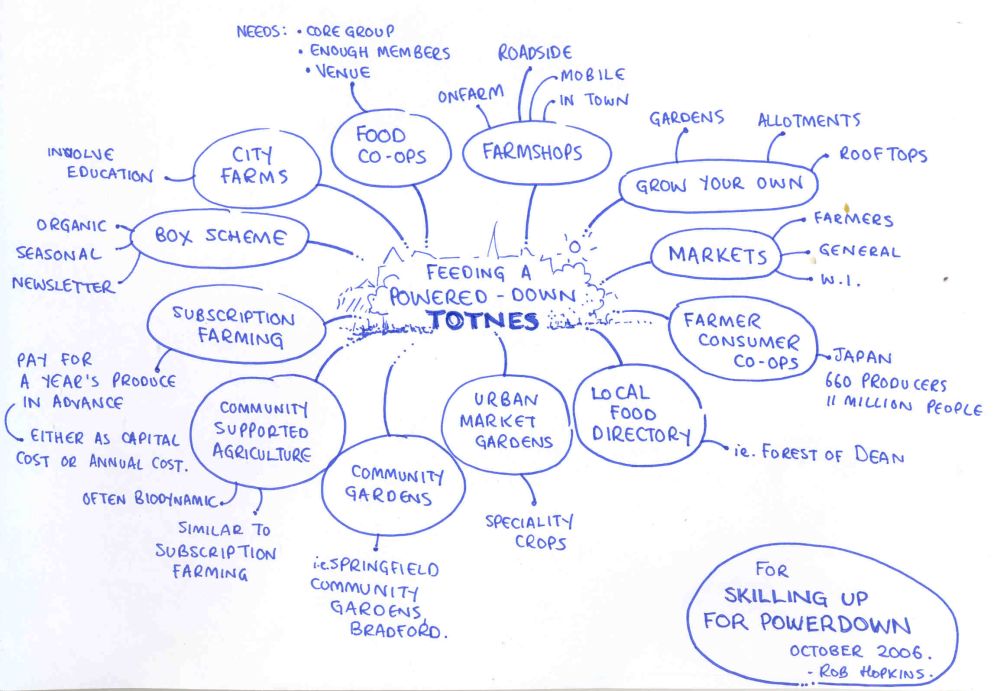 NEEDS: • CORE GROUP
• ENOUGH MEMBERS
• VENUE
FOOD
CO-OPS
ROADSIDE
MOBILE
IN TOWN
ONFARM
FARMSHOPS
GARDENS
ALLOTMENTS
ROOFTOPS
GROW YOUR OWN
INVOLVE
EDUCATION
CITY
FARMS
ORGANIC
SEASONAL
NEWSLETTER
BOX SCHEME
FEEDING A
POWERED-DOWN
TOTNES
MARKETS
FARMERS
GENERAL
W.I.
SUBSCRIPTION
FARMING
PAY FOR
A YEAR'S PRODUCE
IN ADVANCE
EITHER AS CAPITAL
COST OR ANNUAL COST.
FARMER
CONSUMER
CO-OPS
JAPAN
660 PRODUCERS
11 MILLION PEOPLE
COMMUNITY
SUPPORTED
AGRICULTURE
OFTEN BIODYNAMIC
SIMILAR TO
SUBSCRIPTION
FARMING
COMMUNITY
GARDENS
i.e. SPRINGFIELD
COMMUNITY
GARDENS,
BRADFORD.
URBAN
MARKET
GARDENS
SPECIALITY
CROPS
LOCAL
FOOD
DIRECTORY
ie. FOREST OF DEAN
FOR
SKILLING UP
FOR POWERDOWN
OCTOBER 2006.
- ROB HOPKINS.